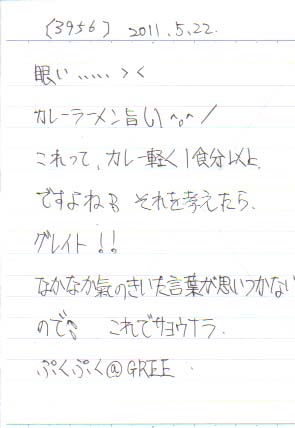 (3956) 2011.5.22.
眠い、、、、、 > <
カレーラーメン旨い) ^o^ /
これって、カレー軽く1食分以上
ですよね それを考えたら、
グレイト!!
なかなか氣のきいた言葉が思いつかない
ので これでサヨウナラ.
ぷくぷく@GREE